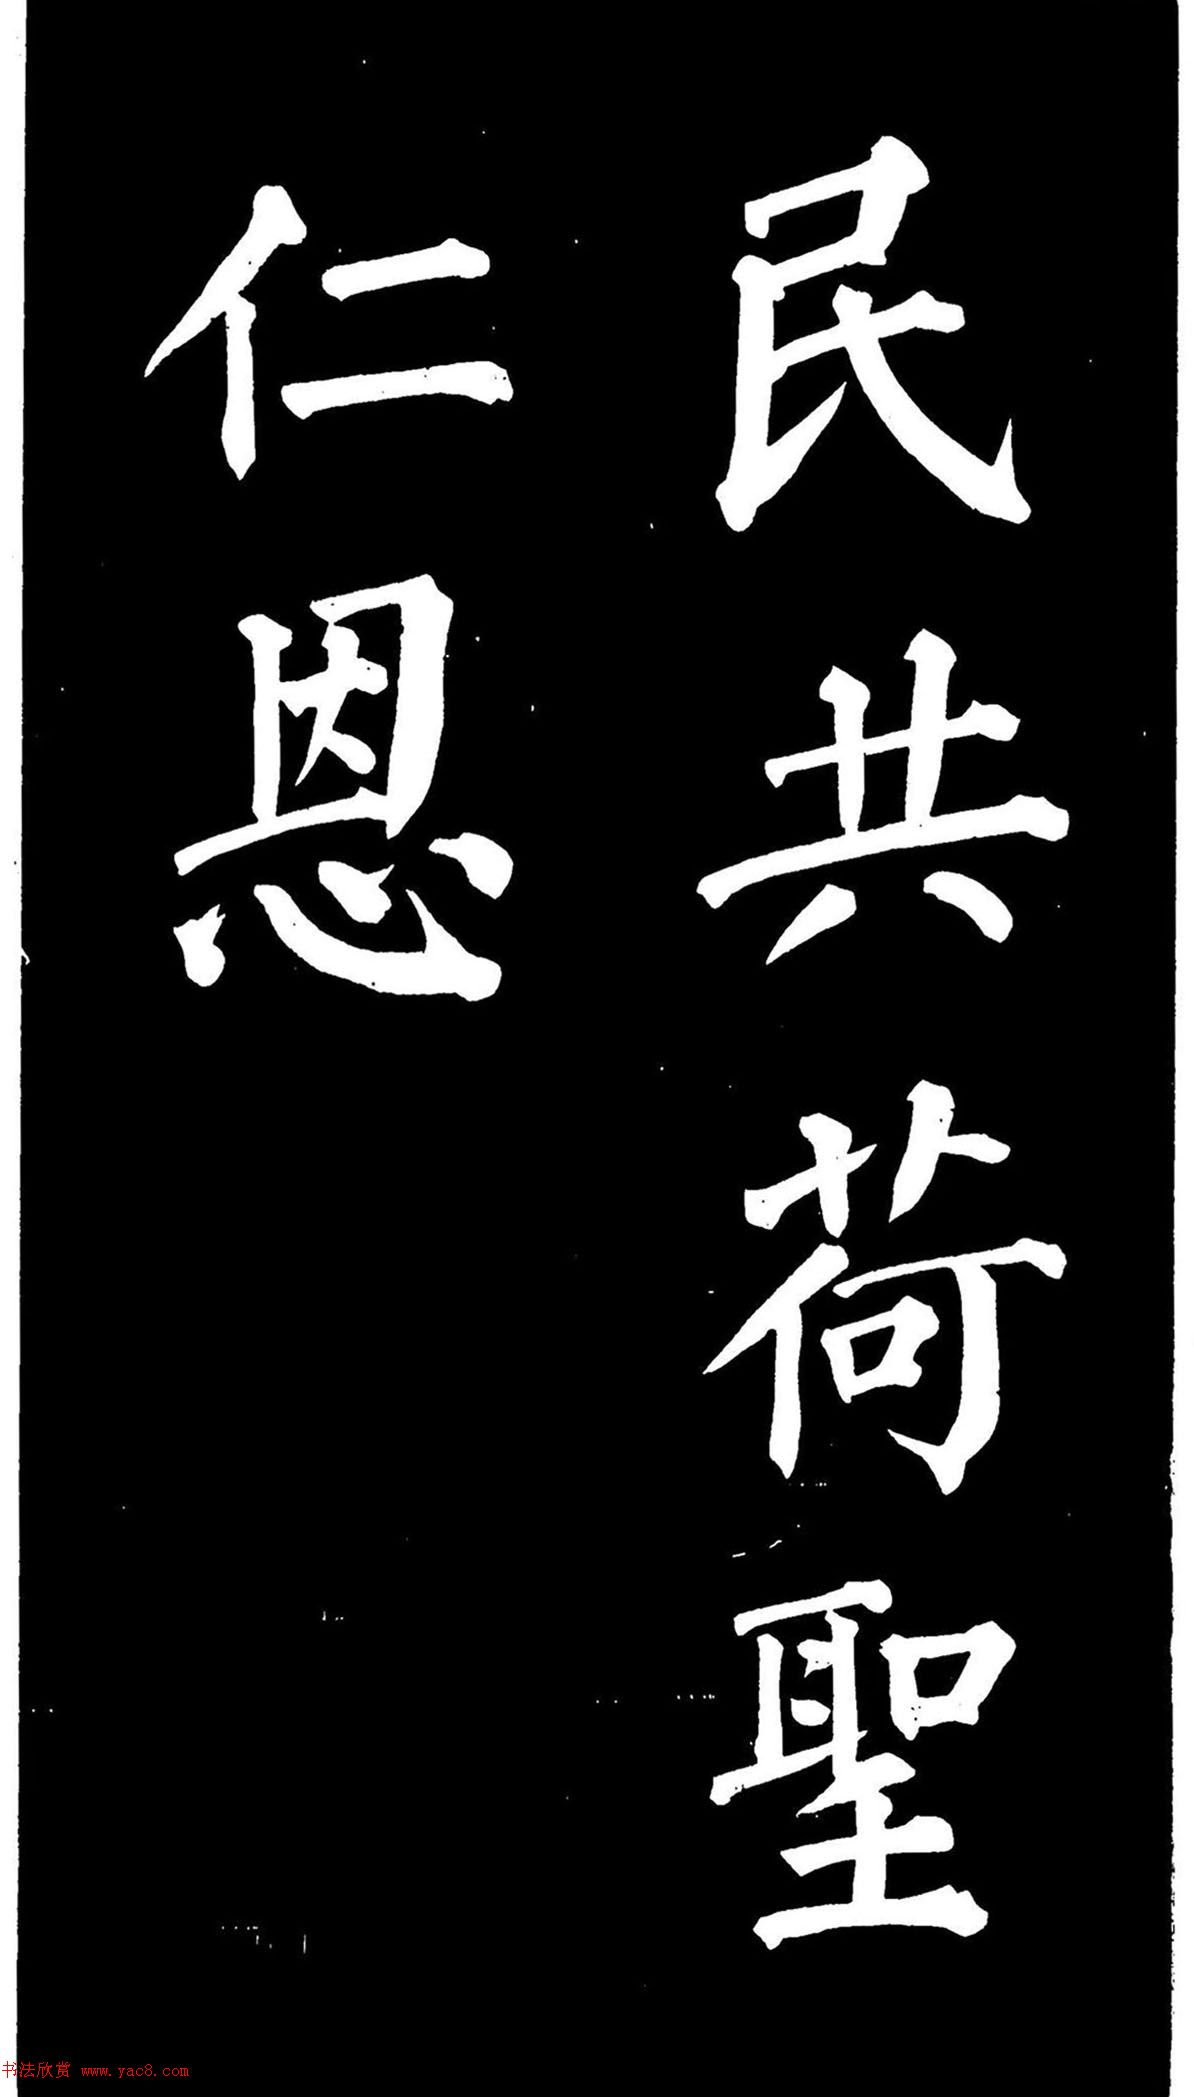 民共荷聖
仁恩
书法欣赏 www.yac8.com